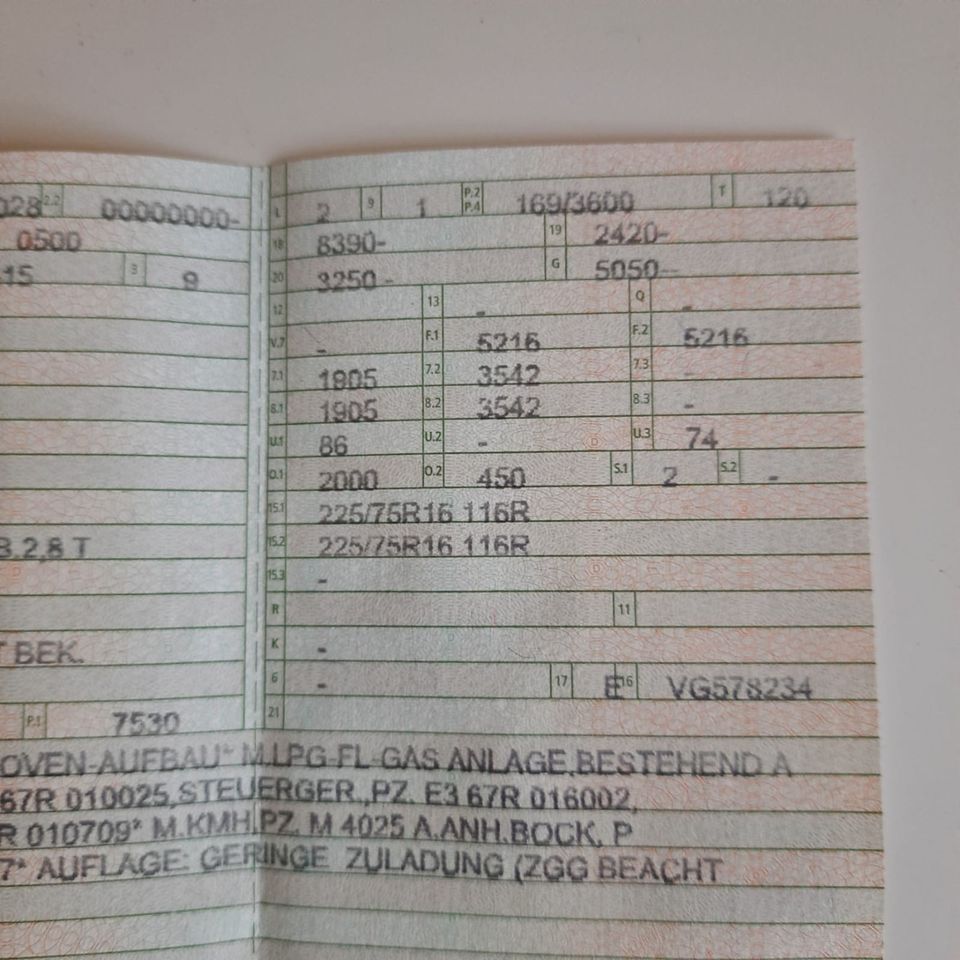 028 2.2 00000000- L 2 9 1 P.2 P.4 169/3600 T 120
0500 18 8390- 19 2420-
15 3 9 20 3250- G 5050-
12 - 13 - Q -
V.7 - F.1 5216 F.2 5216
7.1 1905 7.2 3542 7.3 -
8.1 1905 8.2 3542 8.3 -
U.1 86 U.2 - U.3 74
O.1 2000 O.2 450 S.1 2 S.2 -
15.1 225/75R16 116R
3.2,8 T 15.2 225/75R16 116R
15.3 -
R 11
T BEK. K -
6 - 17 E 16 VG578234
P.1 7530 21
OVEN-AUFBAU* M.LPG-FL-GAS ANLAGE,BESTEHEND A
67R 010025,STEUERGER.,PZ. E3 67R 016002,
R 010709* M.KMH,PZ. M 4025 A.ANH.BOCK, P
7* AUFLAGE: GERINGE ZULADUNG (ZGG BEACHT